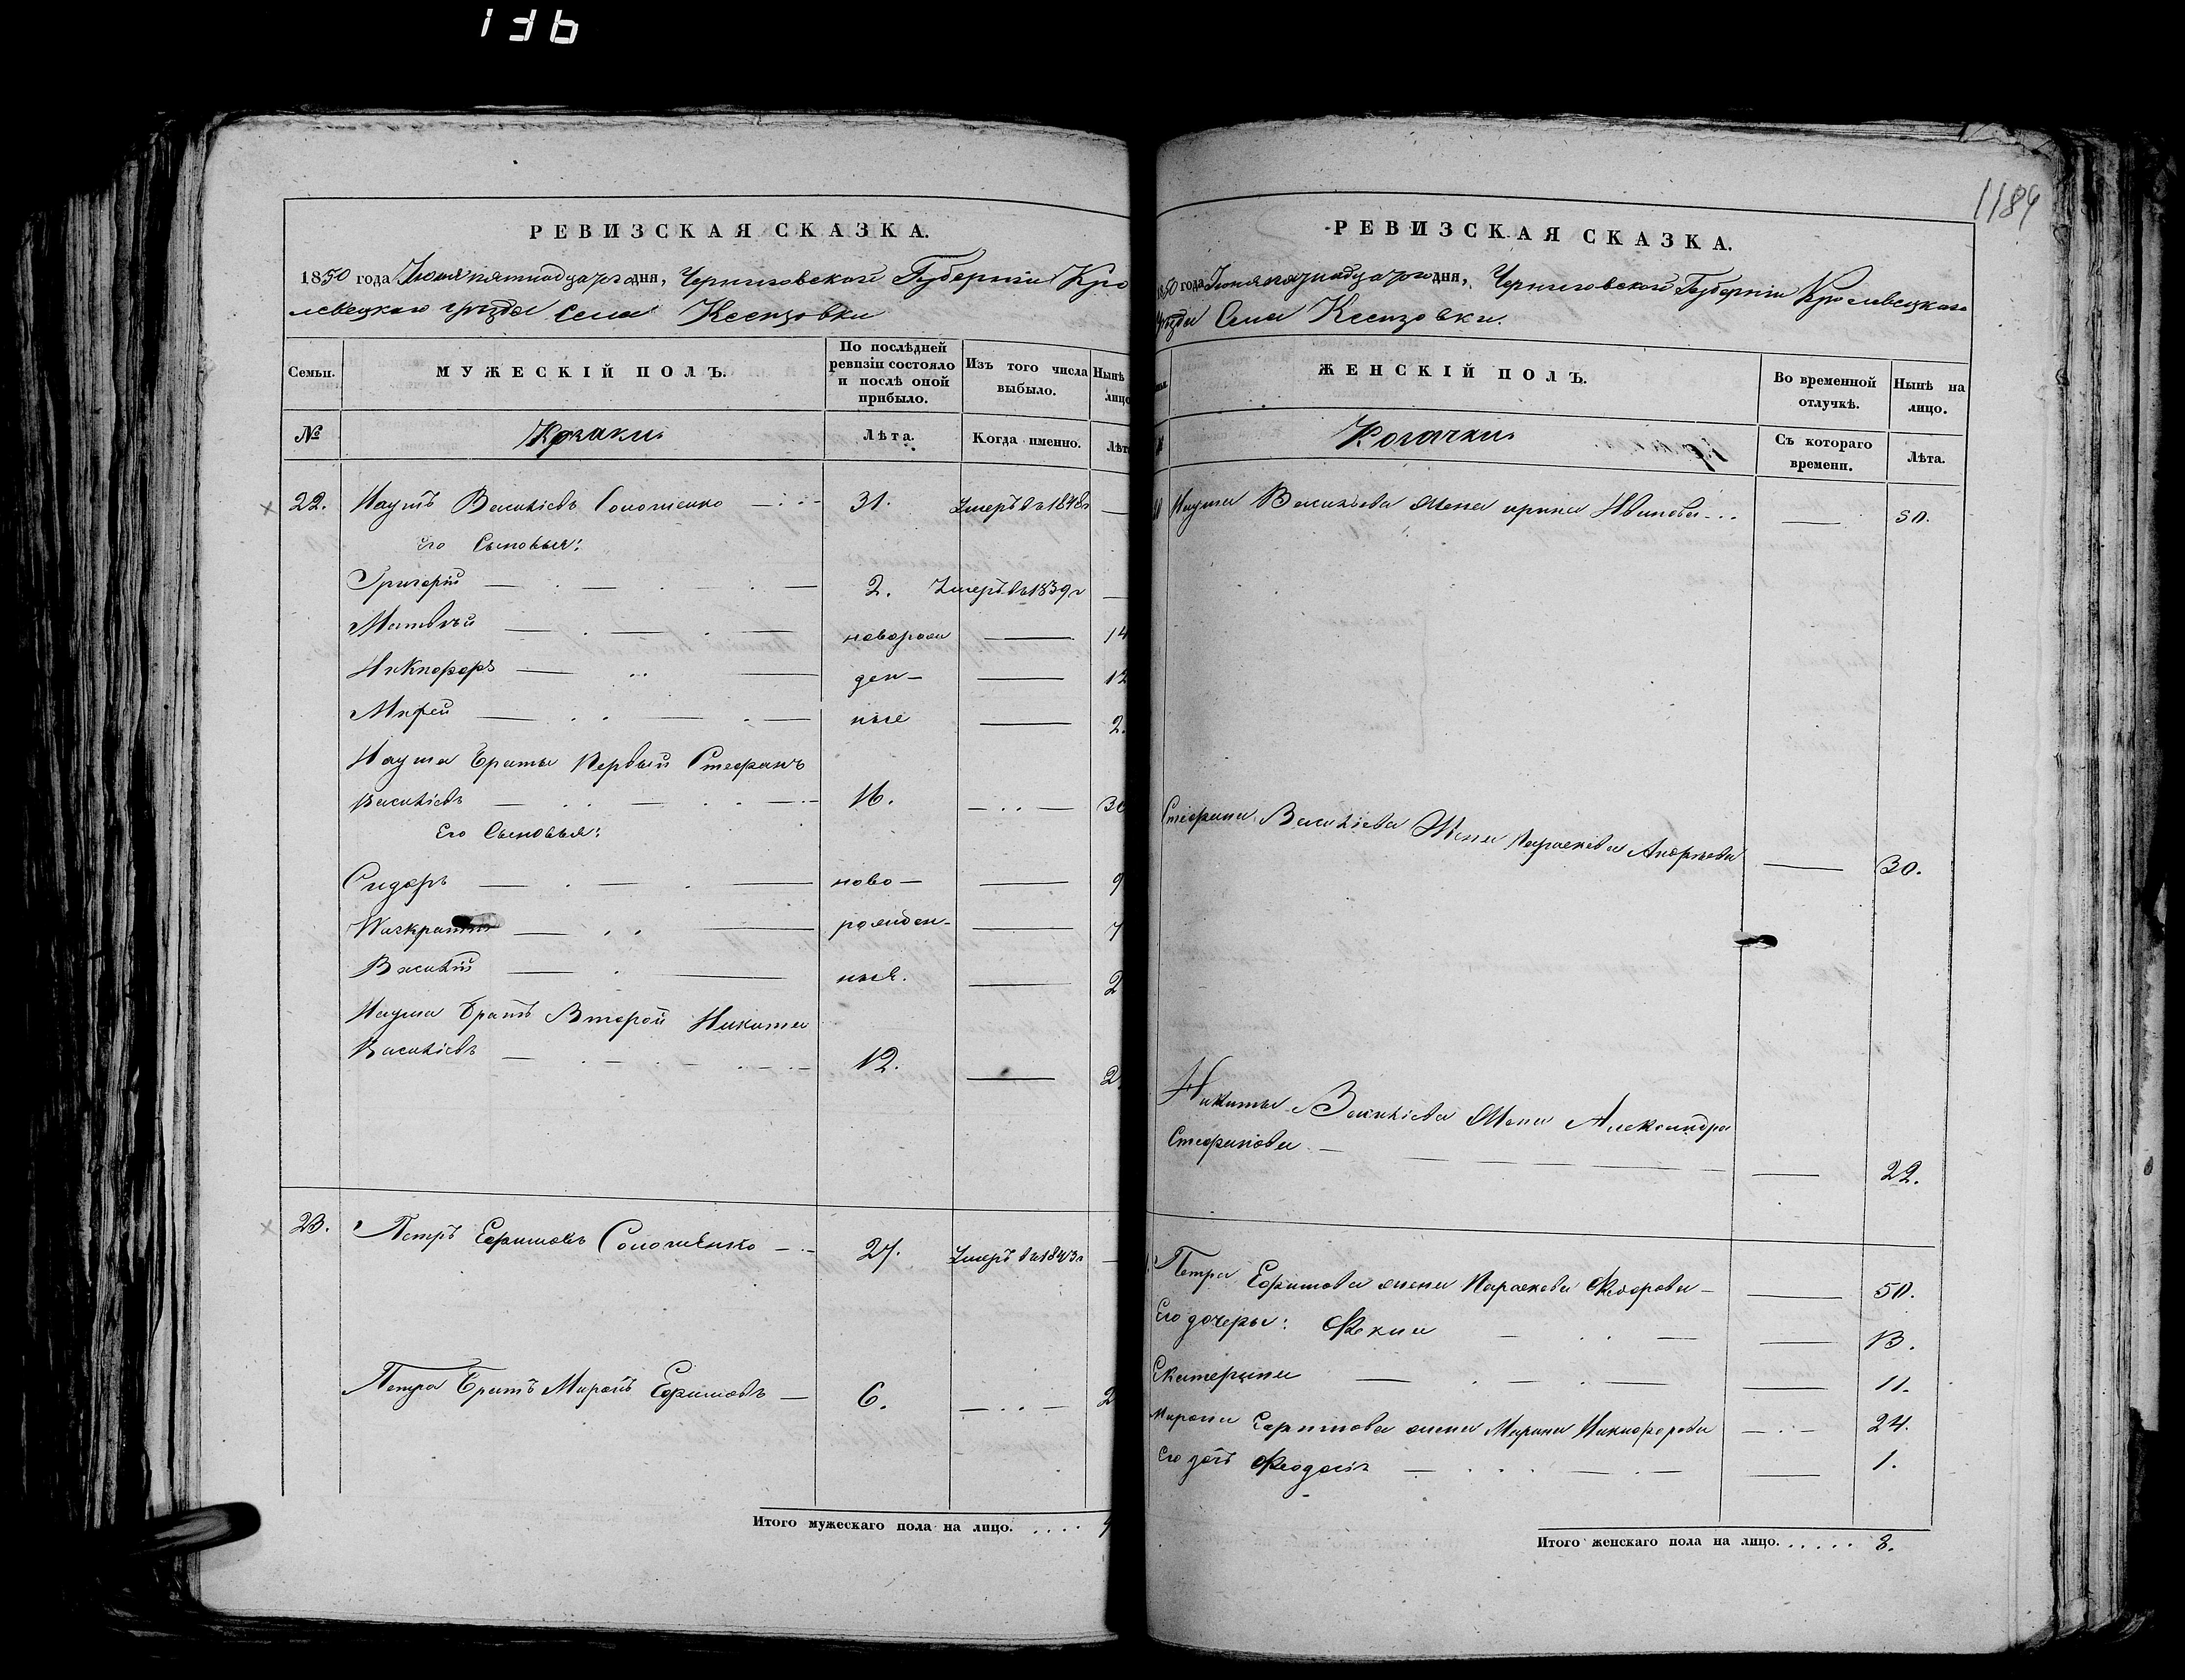 136
РЕВИЗСКАЯ СКАЗКА.
1850 года Іюня пятнадцатого дня, Черниговской Губерніи Кро
левецкаго уезда Села Ксензовки
Семьи.
МУЖЕСКІЙ ПОЛЪ.
По послѣдней ревизіи состояло и послѣ оной прибыло.
Изъ того числа выбыло.
Нынѣ
лицо
№
Козаки
Лѣта.
Когда именно.
Лѣт
22. Наумъ Василіевъ Соломенко 31. Умеръ въ 1848 г
Его Сыновья:
Григорій 2. Умеръ въ 1839 г
Матвѣй новорож 14
Никифоръ ден- 12
Мифей ные 2.
Наума Браты Первый Стефанъ
Василіевъ 16. 30
Его Сыновья:
Сидоръ ново- 9
рожден- 7
Василій ные. 2
Наума Братъ Второй Никита
Василіевъ 12. 2
23. Петръ Ефимовъ Соломенко 27. Умеръ въ 1843 г
Петра Братъ Миронъ Ефимовъ 6. 2
Итого мужескаго пола на лицо.
1184
РЕВИЗСКАЯ СКАЗКА.
1850 года Іюня пятнадцатого дня, Черниговской Губерніи Кролевецкаго
уѣзда Села Ксензовки.
ЖЕНСКІЙ ПОЛЪ.
Во временной отлучкѣ.
Нынѣ на лицо.
Козачки
Съ котораго времени.
Лѣта.
Наума Васильева жена ирина Иванова 50.
Стефана Василіева Жена Параскева Андреева 30.
Никиты Василіева Жена Александра
Стефанова 22.
Петра Ефимова жена Параскева Федорова 50.
Его дочеры: Фекла 13.
Екатерина 11.
Мирона Ефимова жена Марина Никифорова 24.
Его дочь Феодосія 1.
Итого женскаго пола на лицо. 8.